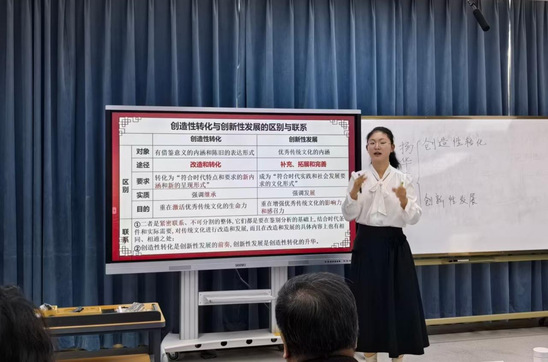 创造性转化与创新性发展的区别与联系
创造性转化
创新性发展
区别
对象
有借鉴意义的内涵和陈旧的表达形式
优秀传统文化的内涵
途径
改造和转化
补充、拓展和完善
要求
转化为“符合时代特点和要求的新内
涵和新的呈现形式”
成为“符合时代实践和社会发展要
求的文化形式”
实质
强调继承
强调发展
目的
重在激活优秀传统文化的生命力
重在增强优秀传统文化的影响力
和感召力
联系
①二者是紧密联系、不可分割的整体,它们都是要在鉴别分析的基础上,结合时代条
件和实际需要,对传统文化进行改造和发展,而且在改造与发展的具体内容上也有相
同、相通之处;
②创造性转化是创新性发展的前奏,创新性发展是创造性转化的升华。
创造性转化
创新性发展